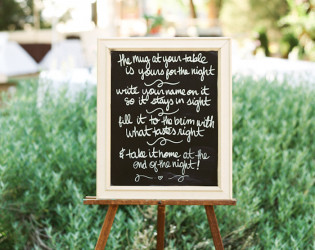 the mug at your table
is yours for the night
write your name on it
so it stays in sight
fill it to the brim with
what tastes right
& take it home at the
end of the night!